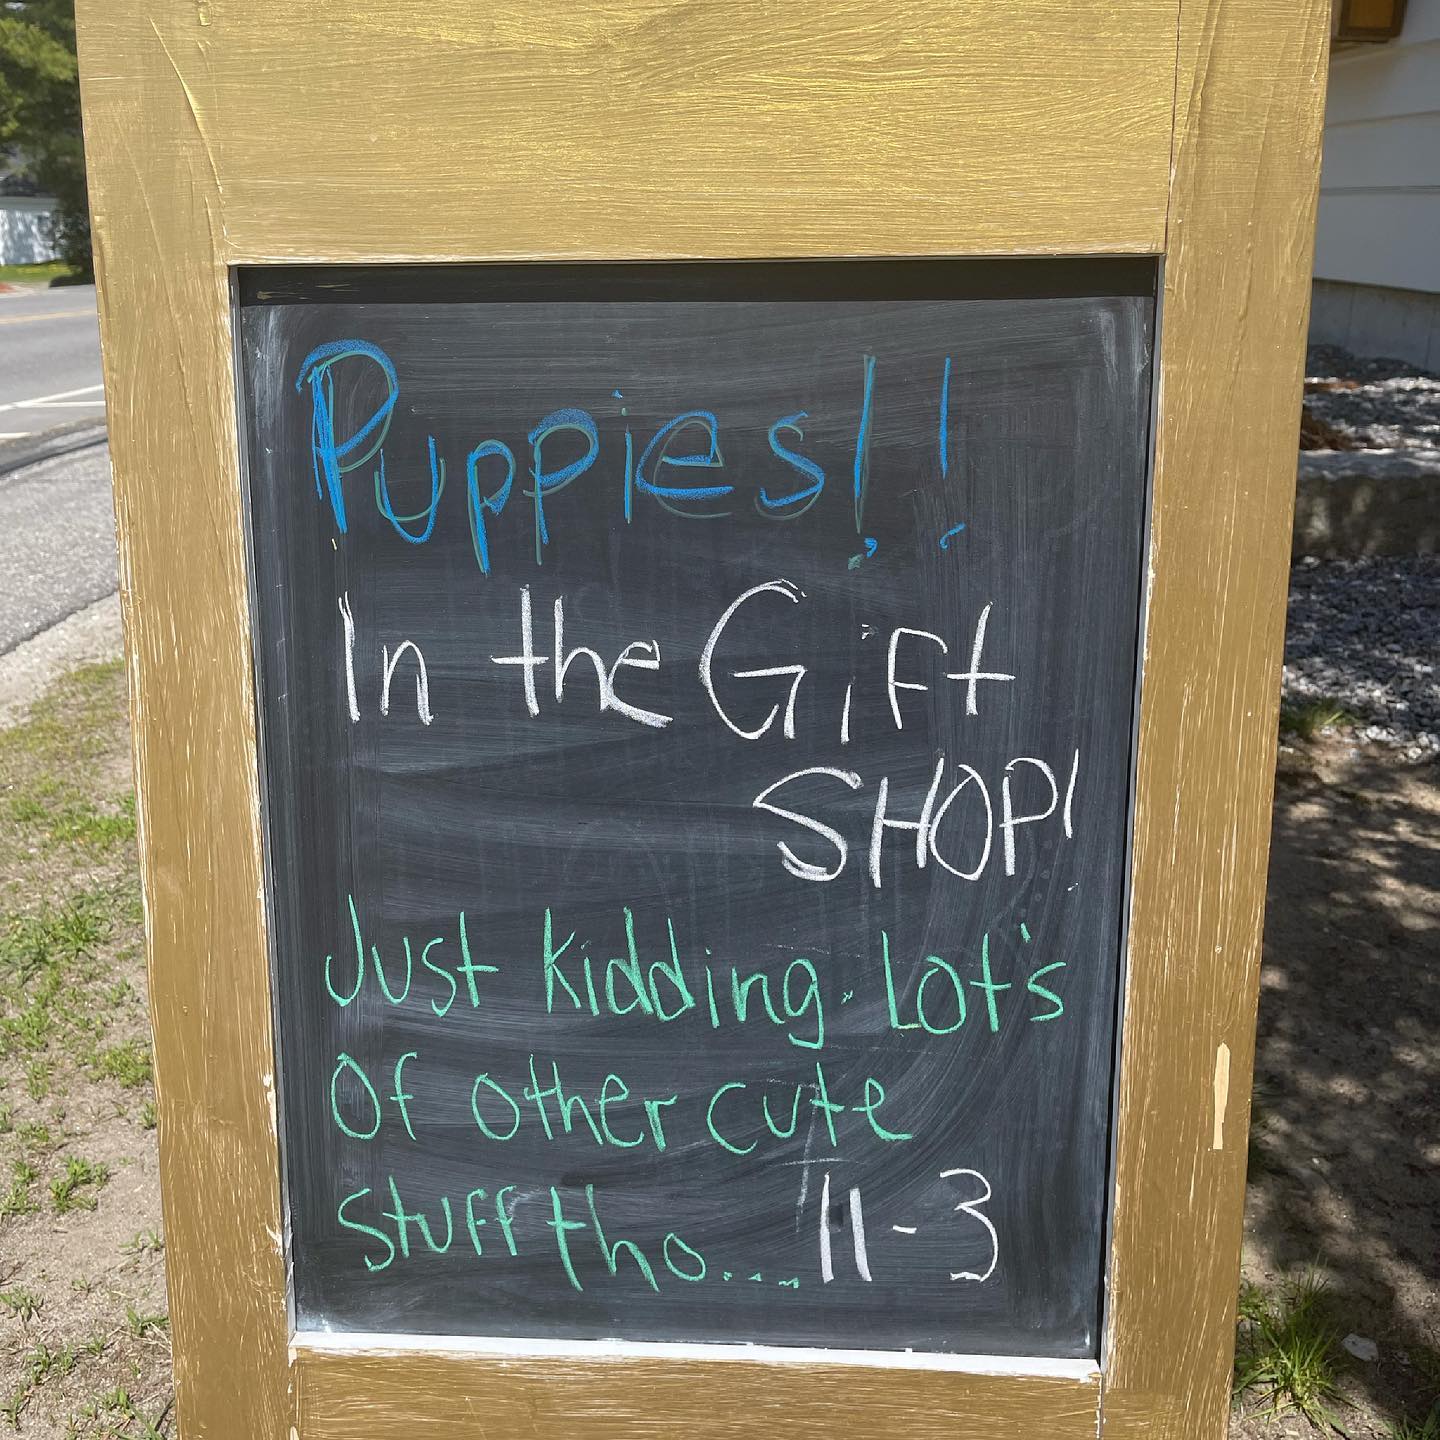 Puppies!!
In the Gift
SHOP!
Just kidding. Lot's
Of other cute
stuff tho.... 11-3